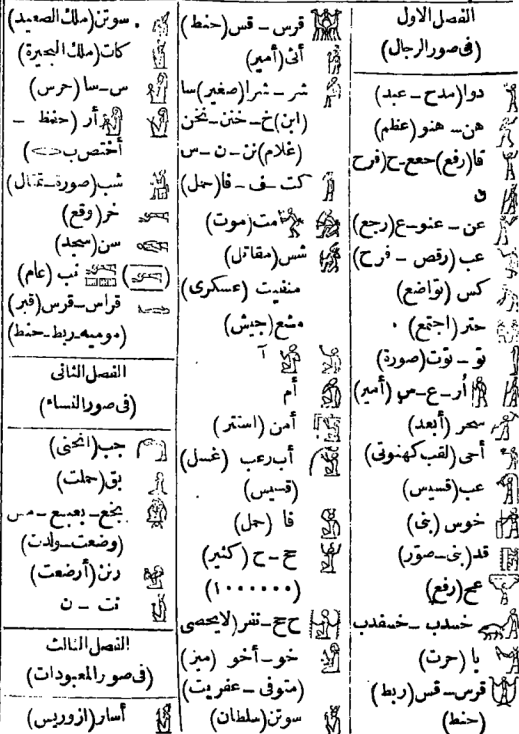 الفصل الاول
(فى صور الرجال)
دوا (مدح - عبد)
هن - هنو (عظم)
قا (رفع) حعع - ح (فرح
ق
عن - عنو - ع (رجع)
عب (رقص - فرح)
كس (تواضع)
حتر (اجتمع)
تو - توت (صورة)
أر - ع - س (أمير)
سحر (أبعد)
أحى (لقب كهنوتى)
عب (قسيس)
خوس (بنى)
قد (بنى - صوّر)
عح (رفع)
خسدب - خسفدب
يا (حرت)
قرس - قس (ربط)
(حنط)
قرس - قس (حنط)
أنى (أمير)
شر - شرا (صغير) سا
(ابن) خ - خنن - نخن
(غلام) نن - ن - س
كت - ف - فا (حمل)
مت (موت)
شس (مقاتل)
منفيت (عسكرى)
مشع (جيش)
آ
أم
أمن (استتر)
أب رعب (غسل)
(قسيس)
فا (حمل)
حح - ح (كثير)
(١٠٠٠٠٠٠)
حح - نفر (لا يحصى
خو - أخو (ميز)
(متوفى - عفريت)
سوتن (سلطان)
سوتن (ملك الصعيد)
كات (ملك البحيرة)
س - سا (حرس)
أر (حفظ -
أختص ب)
شب (صورة - تمثال)
خر (وقع)
سن (سجد)
نب (عام)
قراس - قرس (قبر)
(موميه - ربط - حنط)
الفصل الثانى
(فى صور النساء)
جب (انحنى)
بق (حملت)
بخع - بعبع - مس
(وضعت - ولدت)
رنن (أرضعت)
نت - ن
الفصل الثالث
(فى صور المعبودات)
أسار (ازوريس)